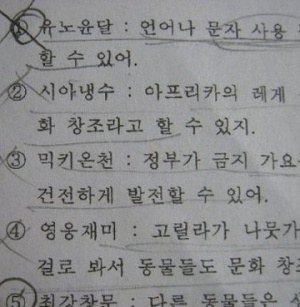 ① 유노윤달 : 언어나 문자 사용
할 수 있어.
② 시아냉수 : 아프리카의 레게
화 창조라고 할 수 있지.
③ 믹키온천 : 정부가 금지 가요
건전하게 발전할 수 있어.
④ 영웅재미 : 고릴라가 나뭇가
걸로 봐서 동물들도 문화 창
⑤ 최강창문 : 다른 동물들은